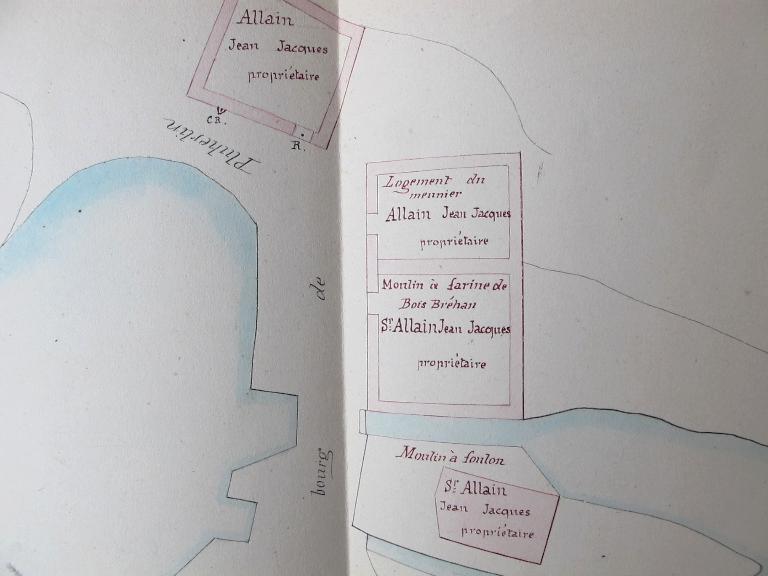 Allain
Jean Jacques
propriétaire
CR.
R.
Pluherlin
de
bourg
Logement du
meunier
Allain Jean Jacques
propriétaire
Moulin à farine de
Bois Bréhan
Sr. Allain Jean Jacques
propriétaire
Moulin à foulon
Sr. Allain
Jean Jacques
propriétaire